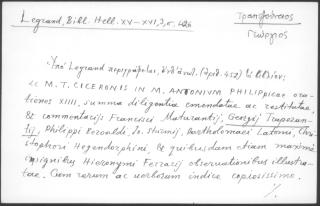 Legrand, Bibl. Hell. XV-XVI, 3, σ. 420
Τραπεζούντιος
Γεώργιος
Ὑπὸ Legrand περιγράφεται, (ἀριθ. 452) τὸ βιβλίον:
M. T. CICERONIS IN M. ANTONIUM PHILIPPICAE ora-
tiones XIIII, summa diligentia emendatae ac restitutae,
& commentarijs Francisci Maturantij, Georgij Trapezun-
tij, Philippi Beroaldi, Jo. Sturmij, Bartholomaei Latomi, Chri-
stophori Hegendorphini, & quibusdam etiam maxime
insignibus Hieronymi Ferrarij observationibus illustra-
tae. Cum rerum ac verborum indice copiosissimo.